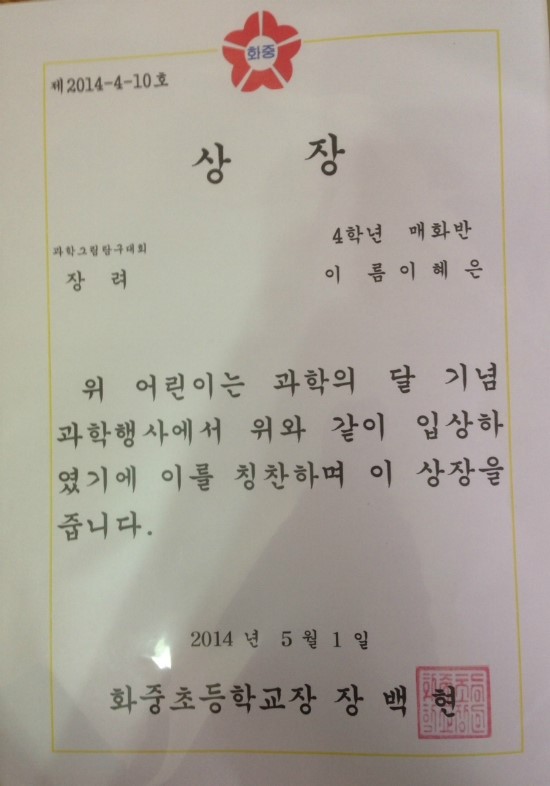 화중
제2014-4-10호
상 장
4학년 매화반
과학그림탐구대회
장 려
이 름 이 혜 은
위 어린이는 과학의 달 기념
과학행사에서 위와 같이 입상하
였기에 이를 칭찬하며 이 상장을
줍니다.
2014 년 5 월 1 일
화중초등학교장 장 백 현